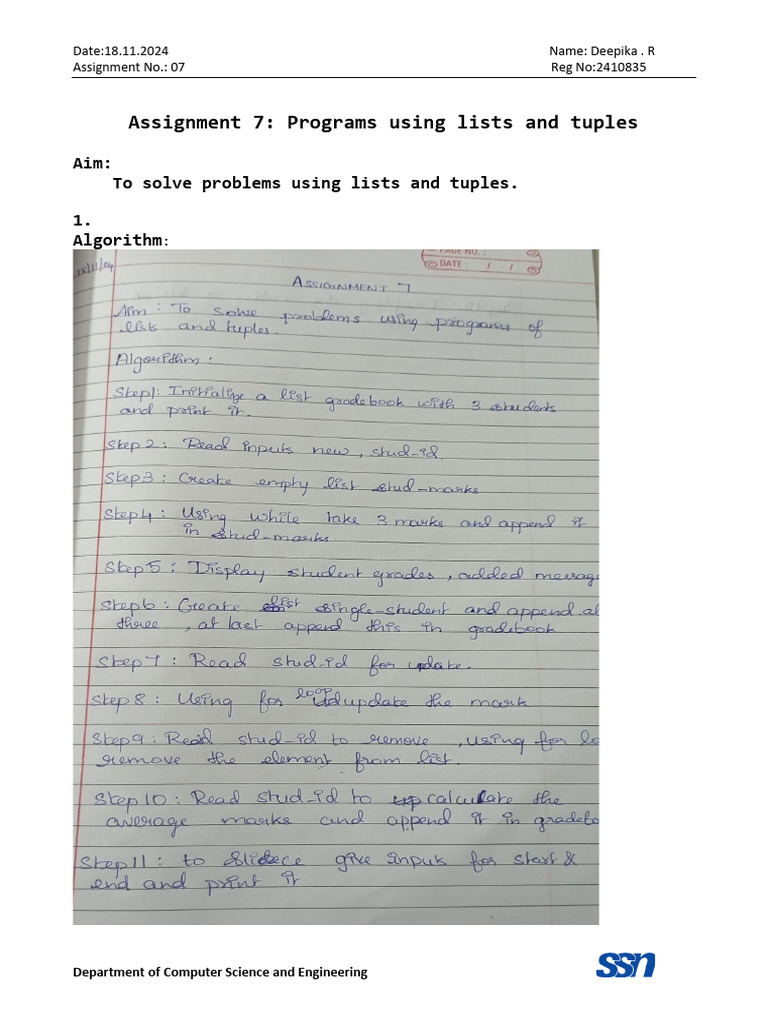 Date:18.11.2024 Name: Deepika . R
Assignment No.: 07 Reg No:2410835
Assignment 7: Programs using lists and tuples
Aim:
To solve problems using lists and tuples.
1.
Algorithm:
PAGE NO. :
DATE : / /
ASSIGNMENT 7
Aim : To solve problems using programs of
lists and tuples.
Algorithm :
Step1: Initialize a list gradebook with 3 students
and print it.
Step 2 : Read inputs new, stud-id
Step3 : Create empty list stud-marks
Step4 : Using while take 3 marks and append it
in stud-marks.
Step 5 : Display student grades , added message
Step6 : Create list single-student and append al
three , at last append this in gradebook
Step 7 : Read stud-id for update.
Step 8 : Using for loop update the mark
Step9 : Read stud-id to remove , using for lo
remove the element from list.
Step 10 : Read stud-id to calculate the
average marks and append it in gradebo
Step 11 : to give input for start &
end and print it
Department of Computer Science and Engineering
ssn